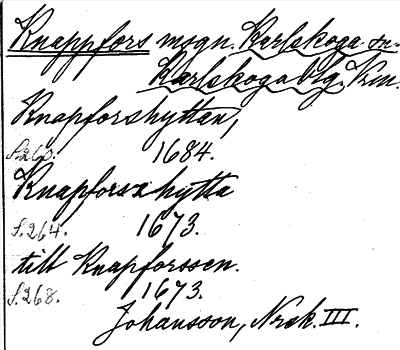 Knappfors msgn. Karlskoga sn.
Karlskoga btg. Vrm.
Knapforshyttan,
S.260. 1684.
Knapforsz hytta
S.264. 1673.
till Knapforssen.
S.268. 1673.
Johansson, Nrck. III.